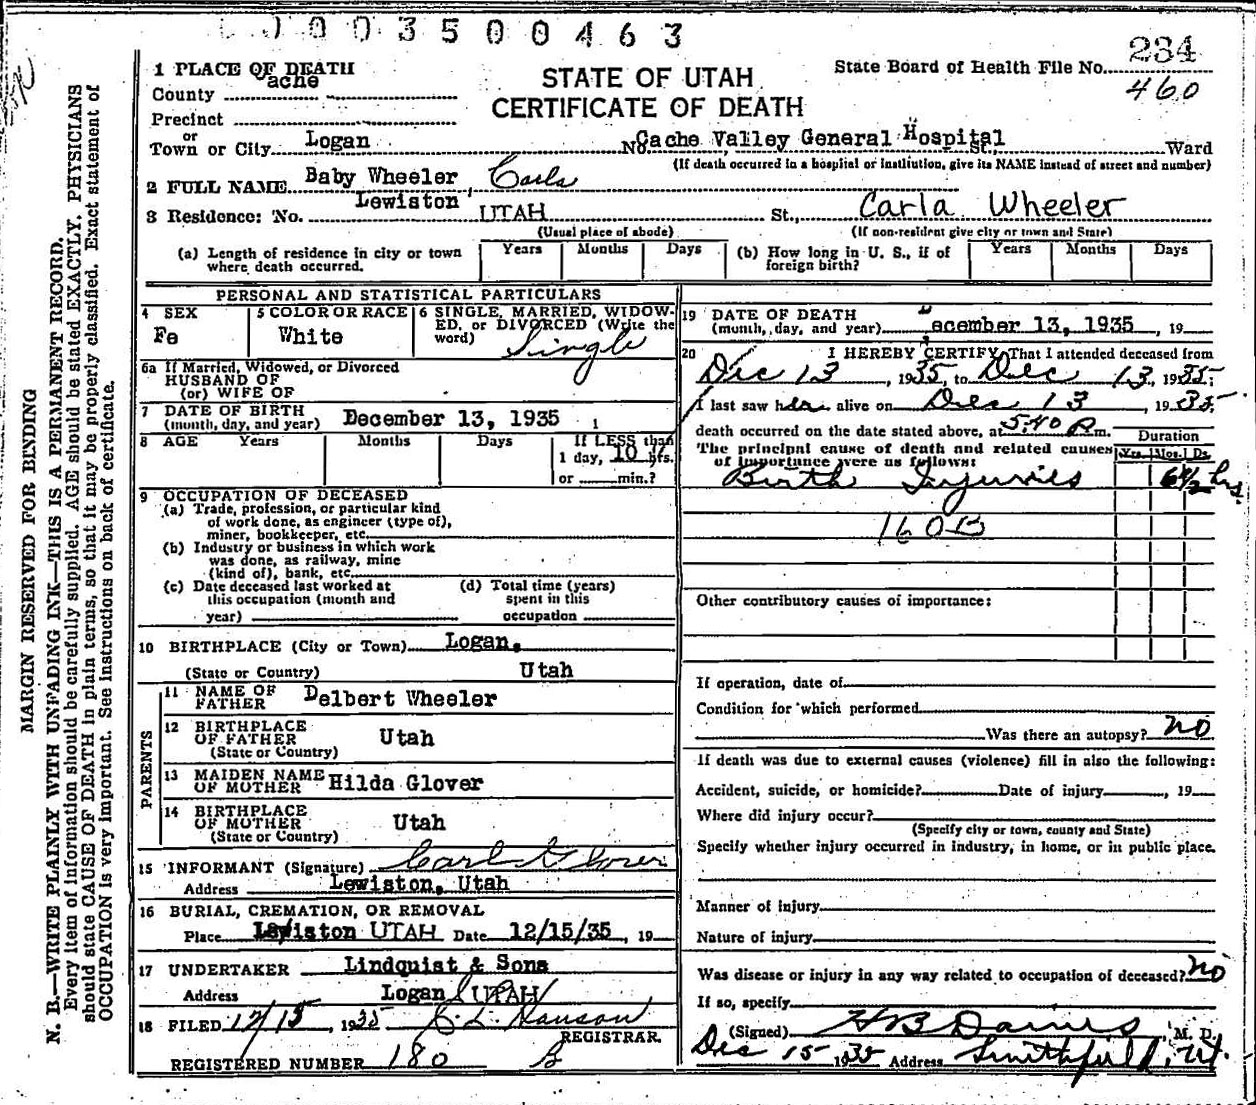 0 0 3 5 0 0 4 6 3
234
State Board of Health File No.
460
STATE OF UTAH
CERTIFICATE OF DEATH
1 PLACE OF DEATH
County ache
Precinct
or
Town or City Logan No. Cache Valley General Hospital St., Ward
(If death occurred in a hospital or institution, give its NAME instead of street and number)
2 FULL NAME Baby Wheeler, Carla
3 Residence: No. Lewiston, UTAH St., Carla Wheeler
(Usual place of abode) (If non-resident give city or town and State)
(a) Length of residence in city or town where death occurred. Years Months Days (b) How long in U. S., if of foreign birth? Years Months Days
PERSONAL AND STATISTICAL PARTICULARS
4 SEX
Fe
5 COLOR OR RACE
White
6 SINGLE, MARRIED, WIDOW-
ED, or DIVORCED (Write the
word) Single
6a If Married, Widowed, or Divorced
HUSBAND OF
(or) WIFE OF
7 DATE OF BIRTH
(month, day, and year) December 13, 1935
8 AGE Years Months Days If LESS than
1 day, 10 hrs.
or min.?
9 OCCUPATION OF DECEASED
(a) Trade, profession, or particular kind
of work done, as engineer (type of),
miner, bookkeeper, etc.
(b) Industry or business in which work
was done, as railway, mine
(kind of), bank, etc.
(c) Date deceased last worked at
this occupation (month and
year)
(d) Total time (years)
spent in this
occupation
10 BIRTHPLACE (City or Town) Logan,
(State or Country) Utah
PARENTS
11 NAME OF
FATHER Delbert Wheeler
12 BIRTHPLACE
OF FATHER Utah
(State or Country)
13 MAIDEN NAME
OF MOTHER Hilda Glover
14 BIRTHPLACE
OF MOTHER Utah
(State or Country)
15 INFORMANT (Signature) Carl Glover
Address Lewiston, Utah
16 BURIAL, CREMATION, OR REMOVAL
Place Lewiston UTAH Date 12/15/35, 19
17 UNDERTAKER Lindquist & Sons
Address Logan UTAH
18 FILED 12/15, 1935
REGISTRAR.
REGISTERED NUMBER 180
19 DATE OF DEATH
(month, day, and year) December 13, 1935, 19
20 I HEREBY CERTIFY, That I attended deceased from
Dec 13, 1935, to Dec 13, 1935;
I last saw her alive on Dec 13, 1935,
death occurred on the date stated above, at 5:40 P.m.
The principal cause of death and related causes
of importance were as follows:
Duration
Yrs. Mos. Ds.
Birth Injuries 6 1/2 hrs
160B
Other contributory causes of importance:
If operation, date of
Condition for which performed
Was there an autopsy? no
If death was due to external causes (violence) fill in also the following:
Accident, suicide, or homicide? Date of injury, 19
Where did injury occur?
(Specify city or town, county and State)
Specify whether injury occurred in industry, in home, or in public place.
Manner of injury
Nature of injury
Was disease or injury in any way related to occupation of deceased? no
If so, specify
(Signed) M. D.
Dec 15 1935 Address Smithfield, Ut.
MARGIN RESERVED FOR BINDING
N. B.—WRITE PLAINLY WITH UNFADING INK—THIS IS A PERMANENT RECORD.
Every item of information should be carefully supplied. AGE should be stated EXACTLY. PHYSICIANS
should state CAUSE OF DEATH in plain terms, so that it may be properly classified. Exact statement of
OCCUPATION is very important. See instructions on back of certificate.